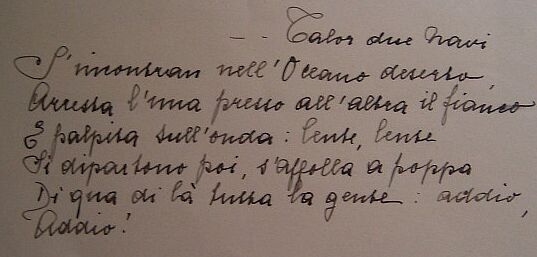 -- Talor due navi
S'incontran nell'Oceano deserto,
Arresta l'una presso all'altra il fianco
E palpita sull'onda: lente, lente
Si dipartono poi, s'affolla a poppa
Di qua di là tutta la gente: addio,
Addio!